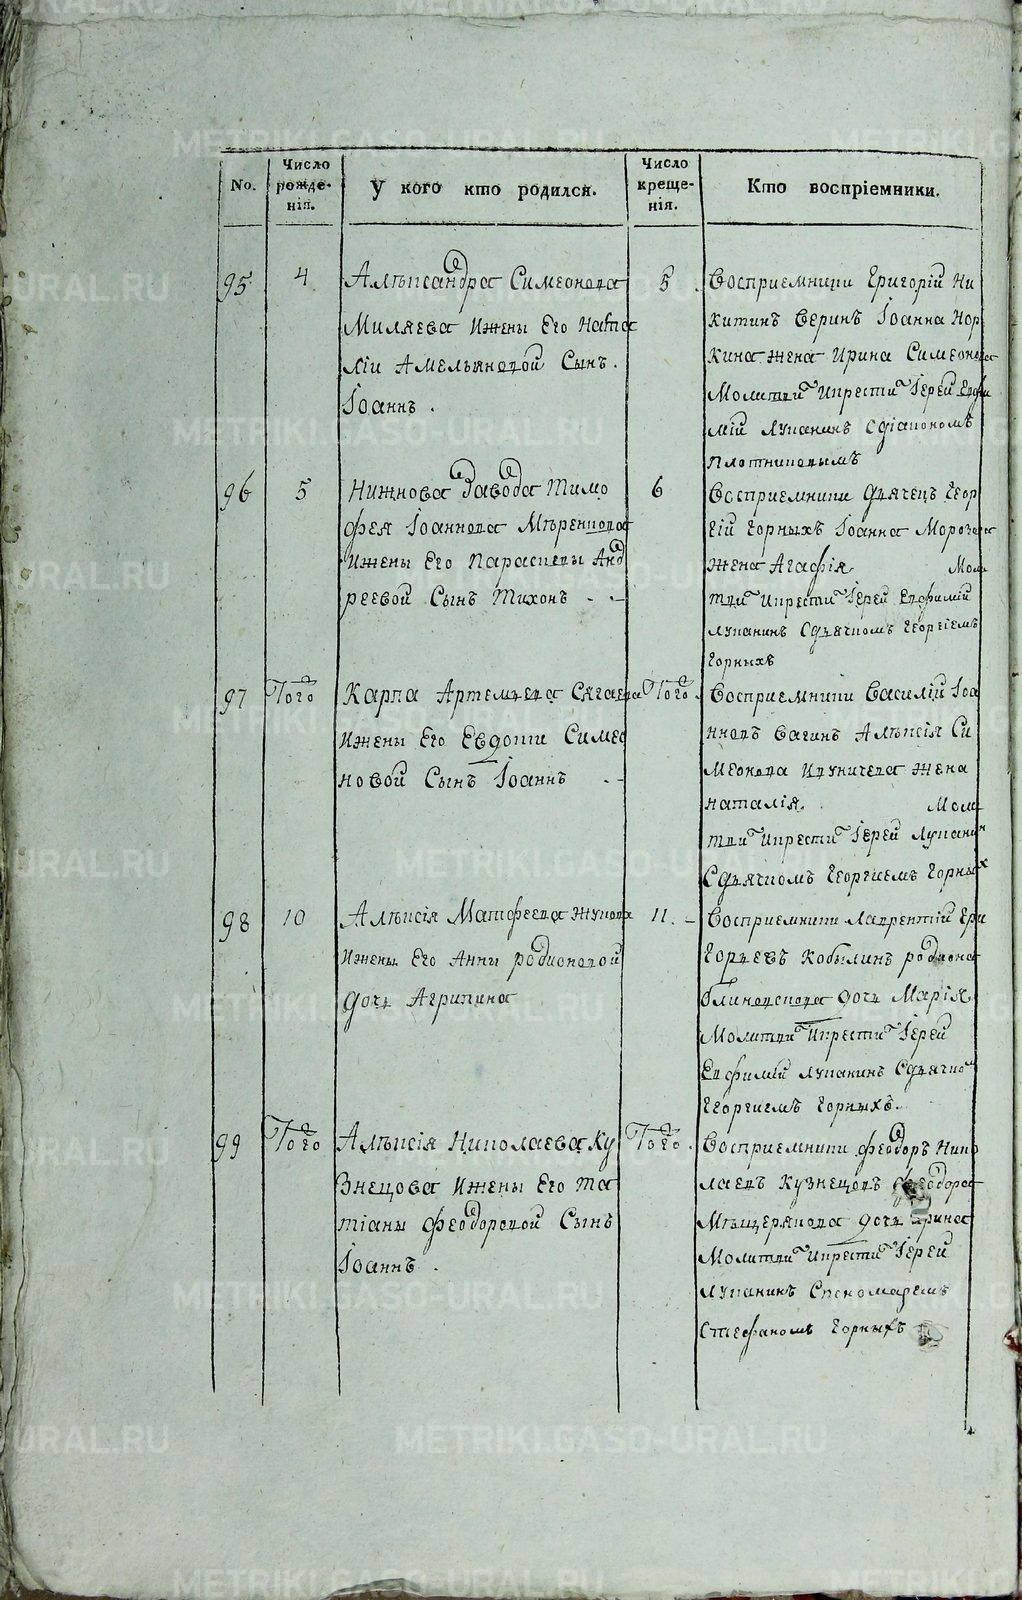 No.
Число рожденія.
У кого кто родился.
Число крещенія.
Кто воспріемники.
95
4
Алѣксандра Симеонова
Миляева Ижены Его Ната
ліи Амельяновой Сынъ.
Іоаннъ.
5
Восприемники Григорій Ни
китинъ Веринъ Іоанна Нор
кина жена Ирина Симеонова
Молитви Икрести Іерей Евфи
мій Лупанинъ Сдіакономъ
Плотниковымъ
96
5
Нижнова Завода Тимо
фея Іоаннова
Ижены Его Параскевы Анд
реевой Сынъ Тихонъ - -
6
Восприемники Дьячецъ Геор
гій Горныхъ Іоанна Морозова
Жена Агафія Моли
тви Икрести Іерей Евфимій
Лупанинъ Сдьячкомъ Георгіемъ
Горныхъ
97
Того
Карпа Артемьева Сягаева
Ижены Его Евдоти Симео
новой Сынъ Іоаннъ - -
Того
Восприемники Василій Іоа
нновъ Вагинъ Алѣксія Си
меонова жена
наталія. Моли
тви Икрести Іерей Лупанин
Сдьячкомъ Георгиемъ Горных
98
10
Алѣксія Матфеева Жукова
Ижены Его Анны родионовой
дочь Агрипина
11. -
Восприемники Лаврентій Гри
горьевъ Кобылинъ родиона
блиновскова дочь Марія
Молитви Икрести Іерей
Евфимій Лупанинъ Сдьячком
Георгиемъ Горныхъ.
99
Того
Алѣксія Николаева Ку
знецова Ижены Его Та
тіаны Феодоровой Сынъ
Іоаннъ.
Того.
Восприемники Феодоръ Нико
лаевъ Кузнецовъ Феодора
Мѣщерякова дочь Ирина
Молитви Икрести Іерей
Лупанинъ Спономаремъ
Стефаномъ Горныхъ
METRIKI.GASO-URAL.RU